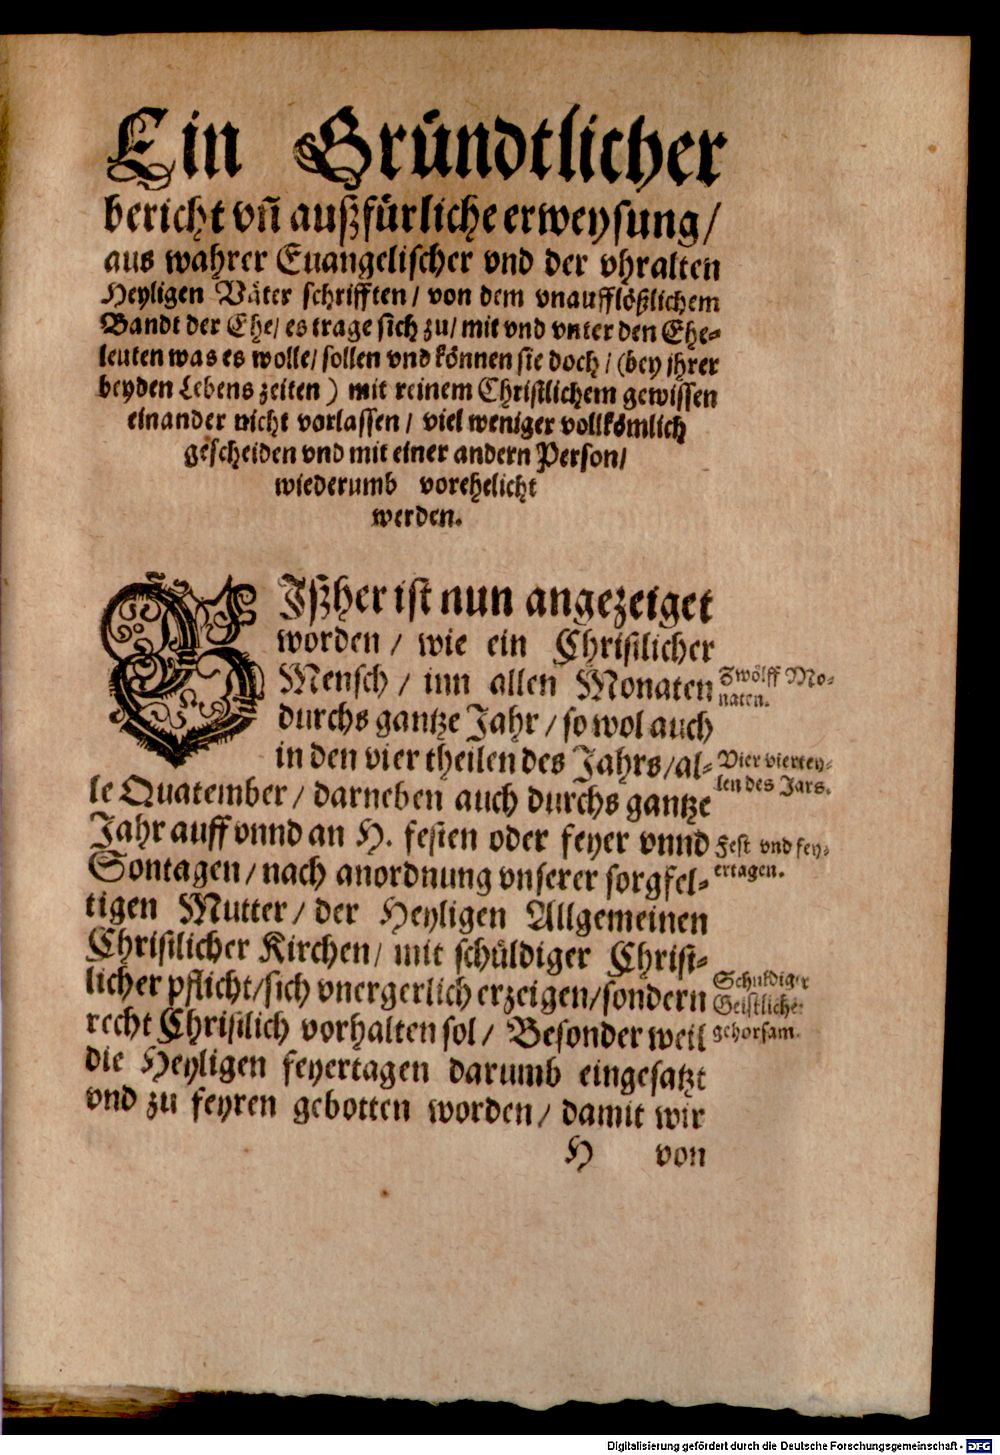 Ein Gründtlicher
bericht vñ außfürliche erweysung/
aus wahrer Euangelischer vnd der vhralten
Heyligen Väter schrifften/ von dem vnaufflößlichem
Bandt der Ehe/ es trage sich zu/ mit vnd vnter den Ehe-
leuten was es wolle/ sollen vnd können sie doch/ (bey jhrer
beyden Lebens zeiten) mit reinem Christlichem gewissen
einander nicht vorlassen/ viel weniger vollkömlich
gescheiden vnd mit einer andern Person/
wiederumb vorehelicht
werden.
BIßher ist nun angezeiget
worden/ wie ein Christlicher
Mensch/ inn allen Monaten
Zwölff Mo-
naten.
durchs gantze Jahr/ so wol auch
in den vier theilen des Jahrs/ al-
Vier viertey-
len des Jars.
le Quatember/ darneben auch durchs gantze
Jahr auff vnnd an H. festen oder feyer vnnd
Fest vnd fey-
ertagen.
Sontagen/ nach anordnung vnserer sorgfel-
tigen Mutter/ der Heyligen Allgemeinen
Christlicher Kirchen/ mit schüldiger Christ-
licher pflicht/ sich vnergerlich erzeigen/ sondern
Schuldiger
Geistlicher
gehorsam.
recht Christlich vorhalten sol/ Besonder weil
die Heyligen feyertagen darumb eingesatzt
vnd zu feyren gebotten worden/ damit wir
H von
Digitalisierung gefördert durch die Deutsche Forschungsgemeinschaft - DFG